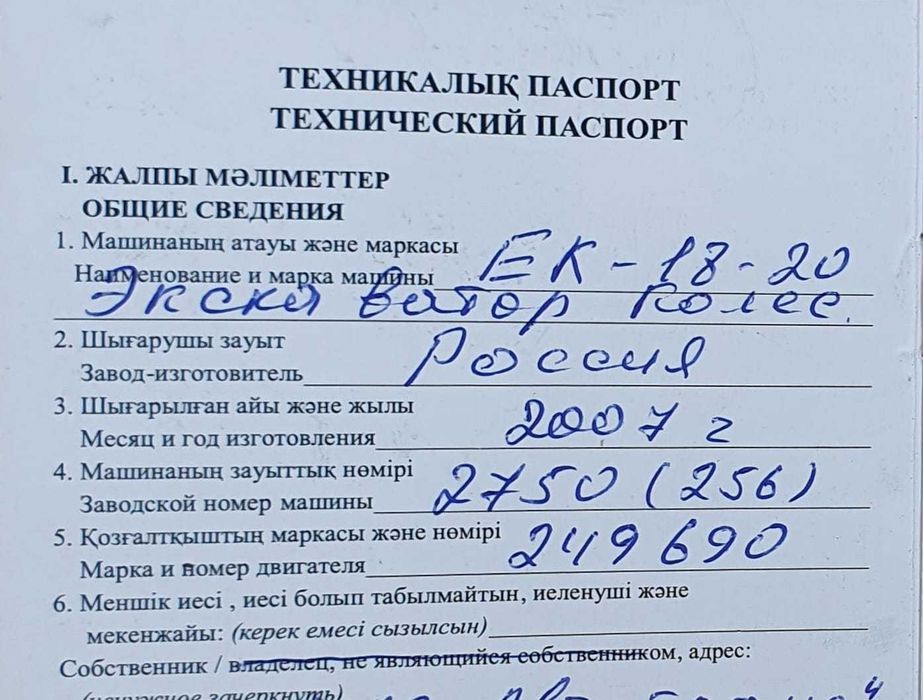 ТЕХНИКАЛЫҚ ПАСПОРТ
ТЕХНИЧЕСКИЙ ПАСПОРТ
I. ЖАЛПЫ МӘЛІМЕТТЕР
ОБЩИЕ СВЕДЕНИЯ
1. Машинаның атауы және маркасы
Наименование и марка машины ЕК-18-20
Экскаватор колес.
2. Шығарушы зауыт
Завод-изготовитель Россия
3. Шығарылған айы және жылы
Месяц и год изготовления 2007 г
4. Машинаның зауыттық нөмірі
Заводской номер машины 2750 (256)
5. Қозғалтқыштың маркасы және нөмірі
Марка и номер двигателя 249690
6. Меншік иесі , иесі болып табылмайтын, иеленуші және
мекенжайы: (керек емесі сызылсын)
Собственник / владелец, не являющийся собственником, адрес:
(ненужное зачеркнуть)